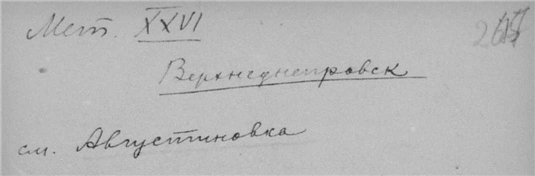 Мет. XXVI
Верхнеднепровск
см. Августиновка